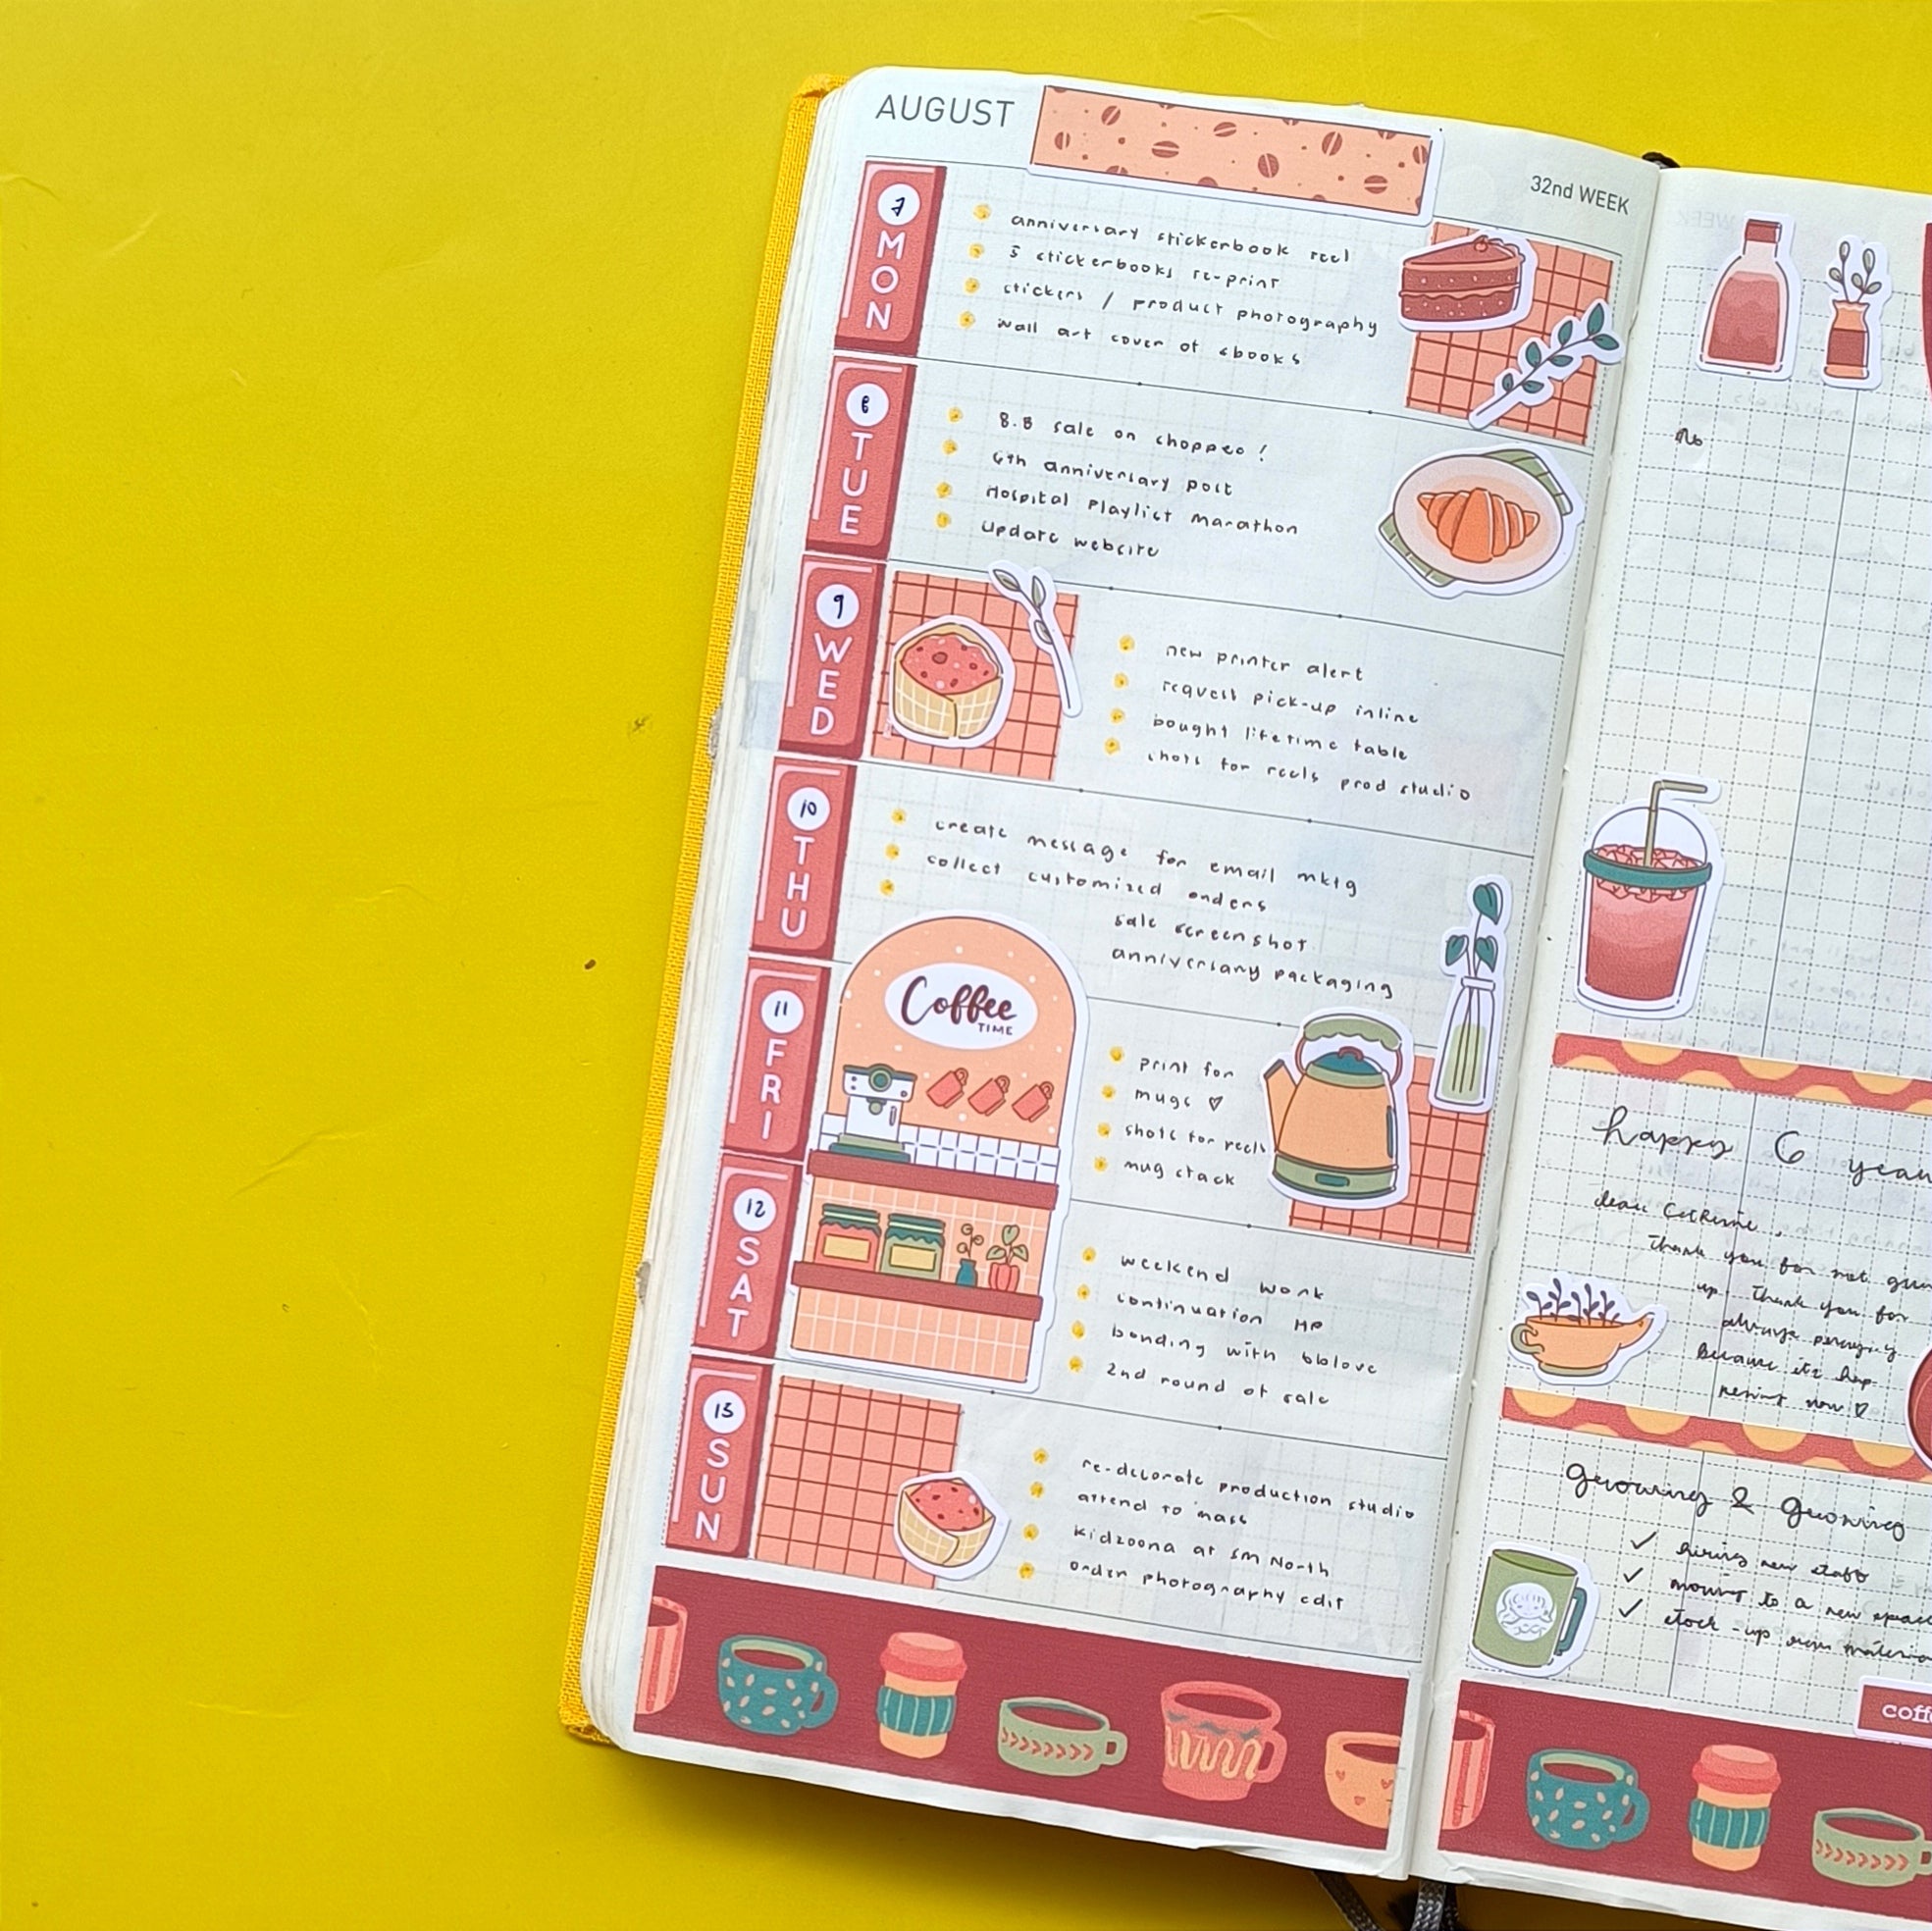 AUGUST
32nd WEEK
7
MON
anniversary stickerbook reel
5 stickerbooks re-print
stickers / product photography
wall art cover of sbooks
8
TUE
8.8 sale on shoppee!
6th anniversary post
Hospital Playlist marathon
update website
9
WED
new printer alert
request pick-up inline
bought lifetime table
shots for reels prod studio
10
THU
create message for email mktg
collect customized orders
sale screenshot
anniversary packaging
Coffee
TIME
11
FRI
print for
mugs ♡
shots for reels
mug stack
12
SAT
weekend work
continuation HP
bonding with bblove
2nd round of sale
13
SUN
re-decorate production studio
attend to mass
kidzoona at SM North
order photography edit
No
happy 6 years
dear Catherine,
Thank you for not
up. Thank you for
always
Because it's hap
pening now ♡
growing & growing
✓ hiring new staff
✓ moving to a new space
✓ stock-up raw
coffe